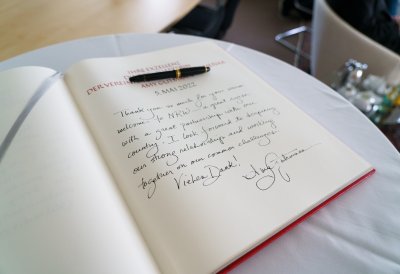 IHRE EXZELLENZ
DER VEREIN
5. MAI 2022
Thank you so much for your warm
welcome to NRW - a great region
with a great partnership with our
country. I look forward to deepening
our strong relationships and working
together on our common challenges.
Vielen Dank!